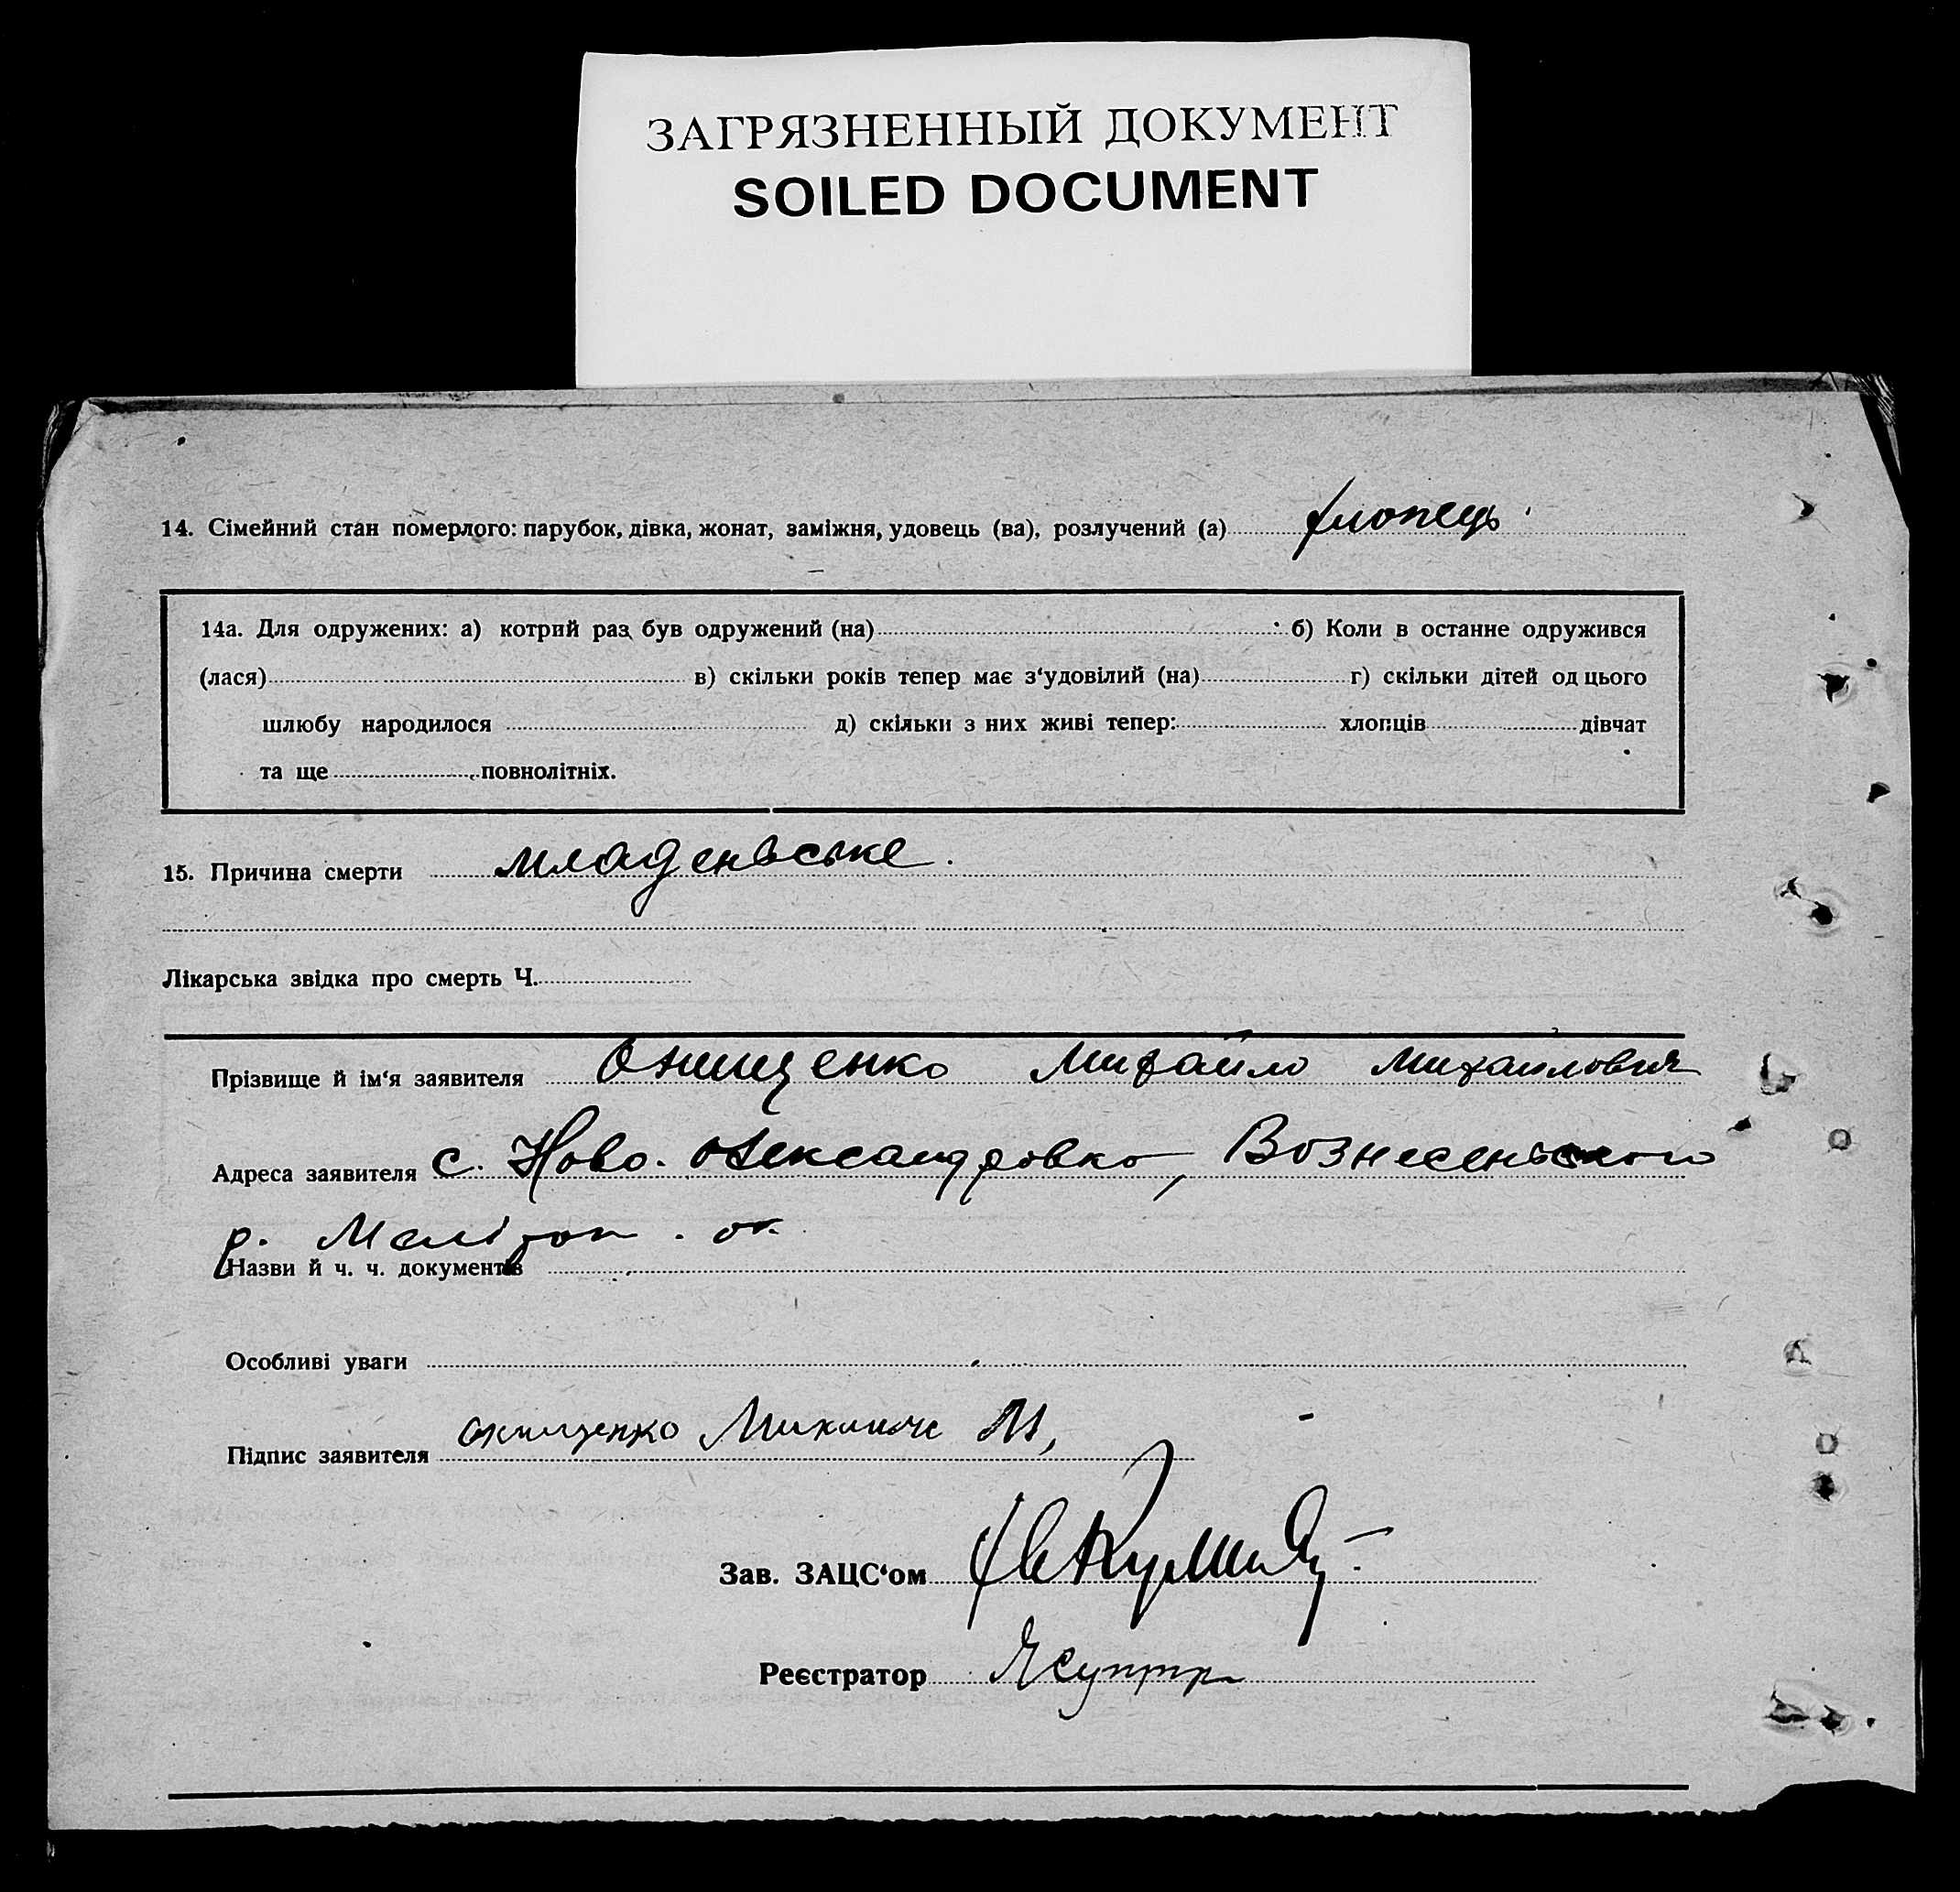 ЗАГРЯЗНЕННЫЙ ДОКУМЕНТ
SOILED DOCUMENT
14. Сімейний стан померлого: парубок, дівка, жонат, заміжня, удовець (ва), розлучений (а) хлопець
14а. Для одружених: а) котрий раз був одружений (на) б) Коли в останне одружився
(лася) в) скільки років тепер має з‘удовілий (на) г) скільки дітей од цього
шлюбу народилося д) скільки з них живі тепер: хлопців дівчат
та ще повнолітніх.
15. Причина смерти младеньське.
Лікарська звідка про смерть Ч.
Прізвище й ім‘я заявителя Онищенко Михайло Михайлович
Адреса заявителя с. Ново. Олександровка, Вознесенського
р. Мелітоп. ок.
Назви й ч. ч. документів
Особливі уваги
Підпис заявителя Онищенко М,
Зав. ЗАЦС‘ом
Реєстратор